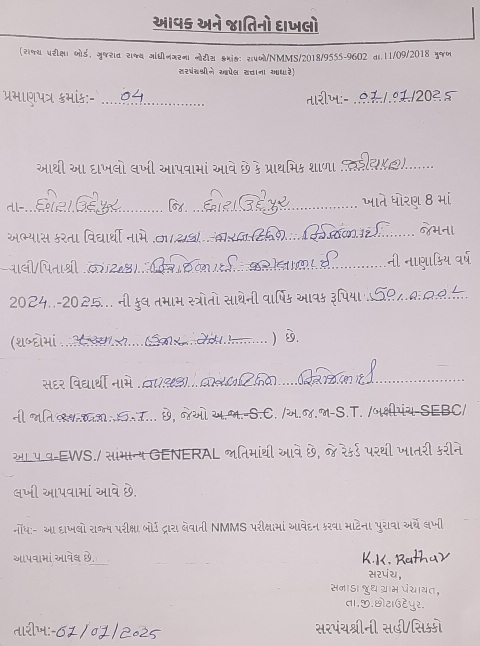 આવક અને જાતિનો દાખલો
(રાજ્ય પરીક્ષા બોર્ડ, ગુજરાત રાજ્ય ગાંધીનગરના નોટીસ ક્રમાંક: રાપબો/NMMS/2018/9555-9602 તા.11/09/2018 મુજબ
સરપંચશ્રીને આપેલ સત્તાના આધારે)
પ્રમાણપત્ર ક્રમાંક:- 04 તારીખ:- 07/07/2025
આથી આ દાખલો લખી આપવામાં આવે છે કે પ્રાથમિક શાળા
તા- છોટાઉદેપુર જિ. છોટાઉદેપુર ખાતે ધોરણ 8 માં
અભ્યાસ કરતા વિદ્યાર્થી નામે નાયકા જેમના
વાલી/પિતાશ્રી નાયકા ની નાણાકિય વર્ષ
2024 -2025 ની કુલ તમામ સ્ત્રોતો સાથેની વાર્ષિક આવક રૂપિયા 50,000/-
(શબ્દોમાં પચ્ચાસ હજાર પુરા) છે.
સદર વિદ્યાર્થી નામે નાયકા
ની જાતિ S.T છે, જેઓ અ.જા.-S.C. /અ.જ.જા-S.T. /બક્ષીપંચ-SEBC/
આ.પ.વ-EWS./ સામાન્ય GENERAL જાતિમાંથી આવે છે, જે રેકર્ડ પરથી ખાતરી કરીને
લખી આપવામાં આવે છે.
નોંધ:- આ દાખલો રાજ્ય પરીક્ષા બોર્ડ દ્વારા લેવાતી NMMS પરીક્ષામાં આવેદન કરવા માટેના પુરાવા અર્થે લખી
આપવામાં આવેલ છે.
K.K. Rathva
સરપંચ,
સનાડા જુથ ગ્રામ પંચાયત,
તા.જી.છોટાઉદેપુર.
તારીખ:- 07/07/2025 સરપંચશ્રીની સહી/સિક્કો